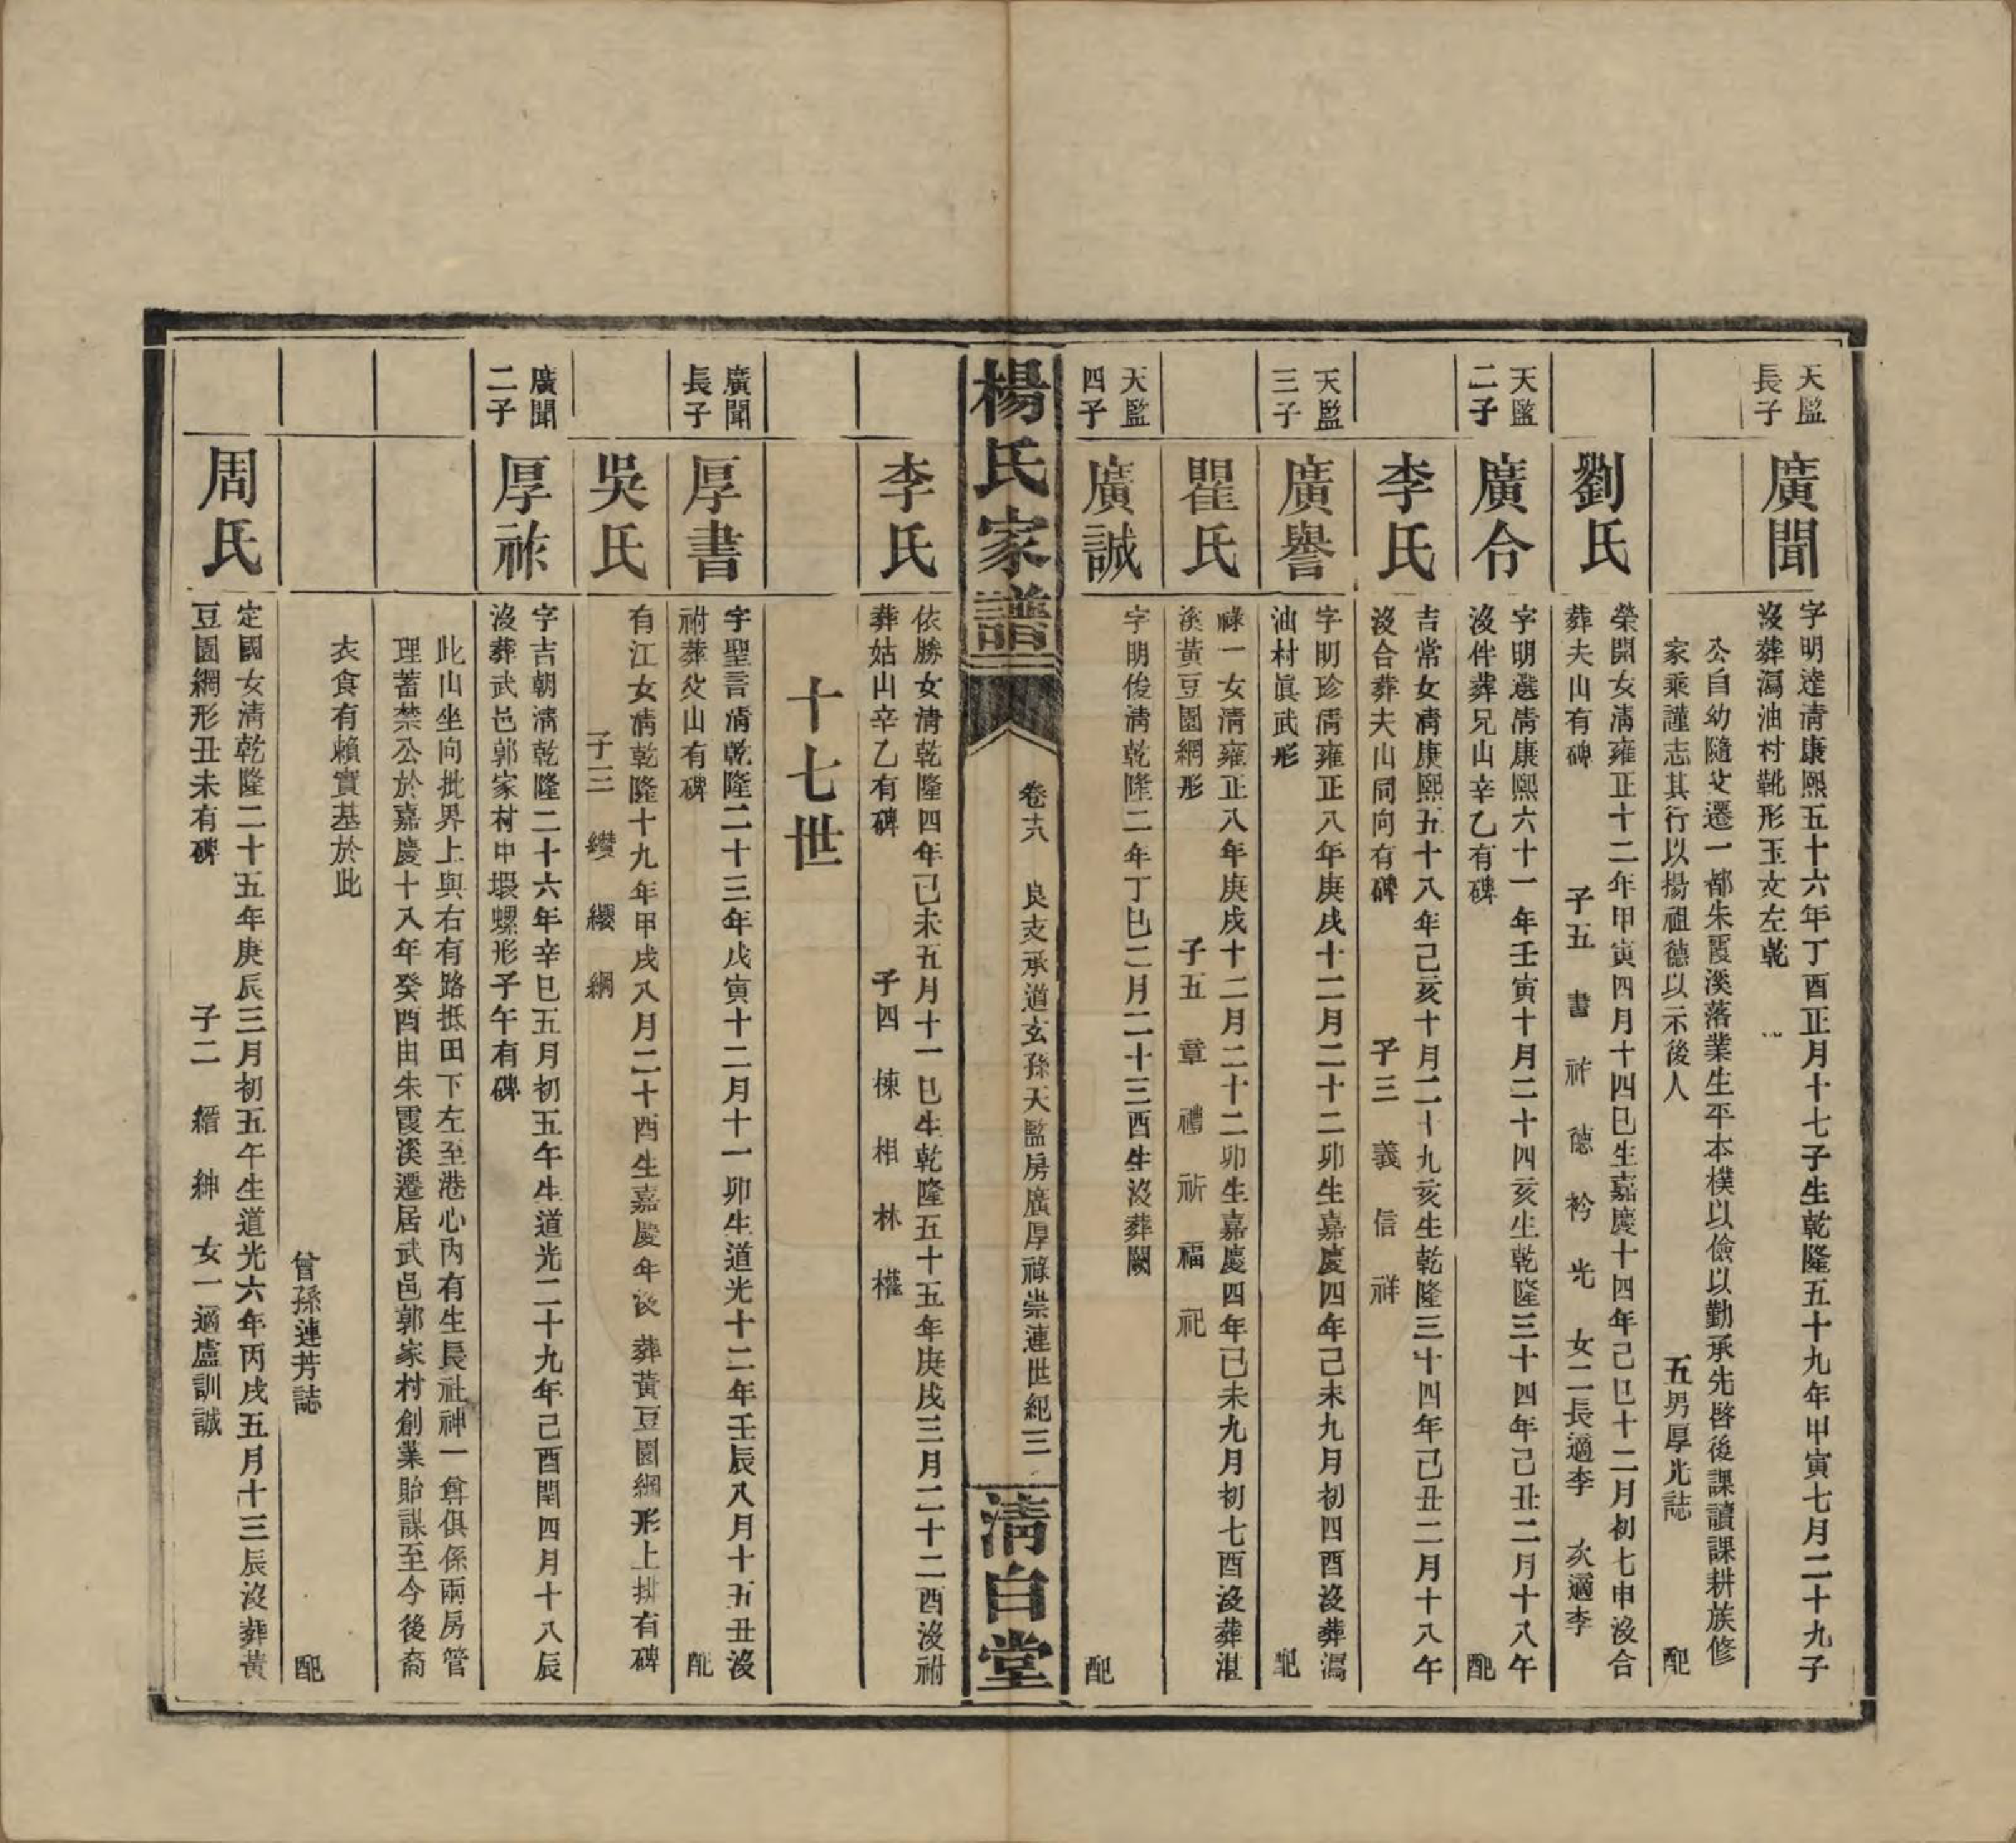 天監
長子
廣聞
字明達清康熙五十六年丁酉正月十七子生乾隆五十九年甲寅七月二十九子
沒葬瀉油村靴形玉文左乾
公自幼隨父遷一都朱霞溪落業生平本樸以儉以勤承先啓後課讀課耕族修
家乘謹志其行以揚祖德以示後人 五男厚光誌 配
劉氏
榮開女清雍正十二年甲寅四月十四巳生嘉慶十四年己巳十二月初七申沒合
葬夫山有碑 子五 書 祚 德 衿 光 女二長適李 次適李
天監
二子
廣令
字明選清康熙六十一年壬寅十月二十四亥生乾隆三十四年己丑二月十八午
沒伴葬兄山辛乙有碑 配
李氏
吉常女清康熙五十八年己亥十月二十九亥生乾隆三十四年己丑二月十八午
沒合葬夫山同向有碑 子三 義 信 祥
天監
三子
廣譽
字明珍清雍正八年庚戌十二月二十二卯生嘉慶四年己未九月初四酉沒葬瀉
油村眞武形 配
瞿氏
祿一女清雍正八年庚戌十二月二十二卯生嘉慶四年己未九月初七酉沒葬湛
溪黃豆園網形 子五 章 禮 祈 福 祀
天監
四子
廣誠
字明俊清乾隆二年丁巳二月二十三酉生沒葬闕
配
楊氏家譜
卷十八 良支承道玄孫天監房廣厚祿崇連世紀 三
清白堂
李氏
依勝女清乾隆四年己未五月十一巳生乾隆五十五年庚戌三月二十二酉沒祔
葬姑山辛乙有碑 子四 棟 相 林 權
十七世
廣聞
長子
厚書
字聖言清乾隆二十三年戊寅十二月十一卯生道光十二年壬辰八月十五丑沒
祔葬父山有碑 配
吳氏
有江女清乾隆十九年甲戌八月二十酉生嘉慶年後葬黃豆園網形上排有碑
子三 纘 纓 綱
廣聞
二子
厚祚
字吉朝清乾隆二十六年辛巳五月初五午生道光二十九年己酉閏四月十八辰
沒葬武邑郭家村中環螺形子午有碑
此山坐向批界上與右有路抵田下左至港心內有生長社神一尊俱係兩房管
理蓄禁公於嘉慶十八年癸酉由朱霞溪遷居武邑郭家村創業貽謀至今後裔
衣食有賴實基於此
曾孫連芳誌 配
周氏
定國女清乾隆二十五年庚辰三月初五午生道光六年丙戌五月十三辰沒葬黃
豆園網形丑未有碑 子二 縉 紳 女一適盧訓誠